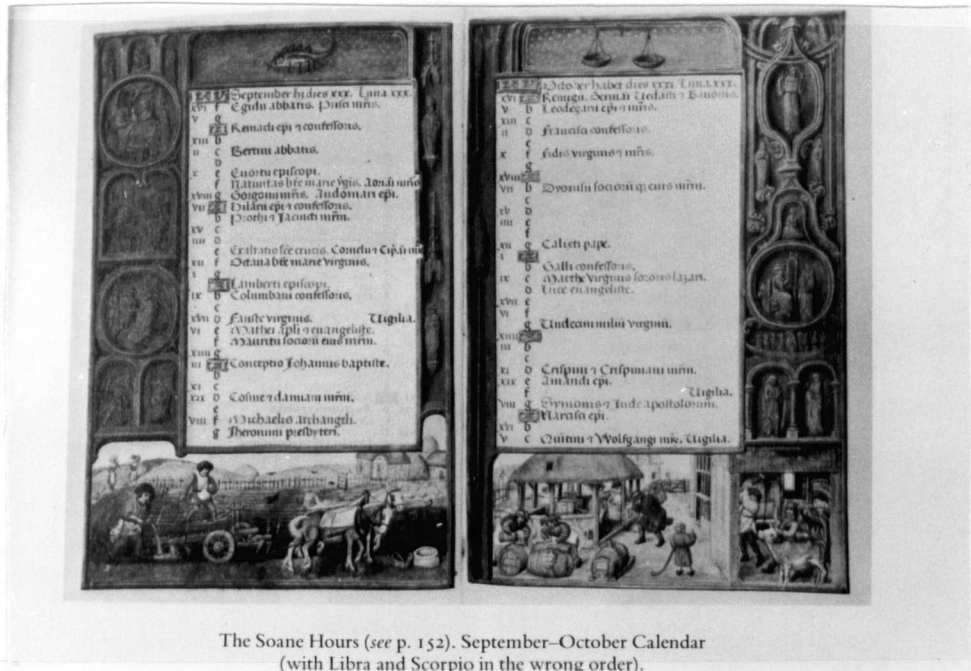 KL September hɜ dies xxx. Luna xxx.
xvi f Egidii abbatis. Prisci mr̄is.
v g
Remacli epi ⁊ confessoris.
xiii b
ii c Bertini abbatis.
d
x e Euortii episcopi.
f Natiuitas bt̄e marie v̄gis. Adriani mr̄is
xviii g Gorgonii mr̄is. Audomari epi.
vii Hilarii epi ⁊ confessoris.
b Prothi ⁊ Jacincti mr̄m.
xv c
iiii d
e Exaltatio sc̄e crucis. Cornelii ⁊ Cip̄ani
xii f Octaua bt̄e marie virginis.
i g
Lamberti episcopi.
ix b Columbani confessoris.
c
xvii d Fauste virginis. Vigilia.
vi e Mathei apl̄i ⁊ euangeliste.
f Mauritii sociorū eius mr̄m.
xiiii g
iii Conceptio Johannis baptiste.
b
xi c
xix d Cosme ⁊ damiani mr̄m.
e
viii f Michaelis archangeli.
g Jheronimi presbyteri.
KL October habet dies xxxi. Luna xxx.
xvi Remigii. Germani Uedasti ⁊ Bauonis.
v b Leodegarii epi ⁊ mr̄is.
xiii c
ii d Francisci confessoris.
e
x f Fidis virginis ⁊ mr̄is.
g
xviii
vii b Dyonisii sociorū q̄ eius mr̄m.
c
xv d
iiii e
f
xii g Calixti pape.
i
b Galli confessoris.
ix c Marthe virginis sororis lazari.
d Luce euangeliste.
xvii e
vi f
g Undecim miliū virginū.
xiiii
iii b
c
xi d Crispini ⁊ Crispiniani mr̄m.
xix e Amandi epi.
f Vigilia.
viii g Symonis ⁊ Jude apostolorum.
Narcisci epi.
xvi b
v c Quitini ⁊ Wolfgangi Vigilia.
The Soane Hours (see p. 152). September–October Calendar
(with Libra and Scorpio in the wrong order).